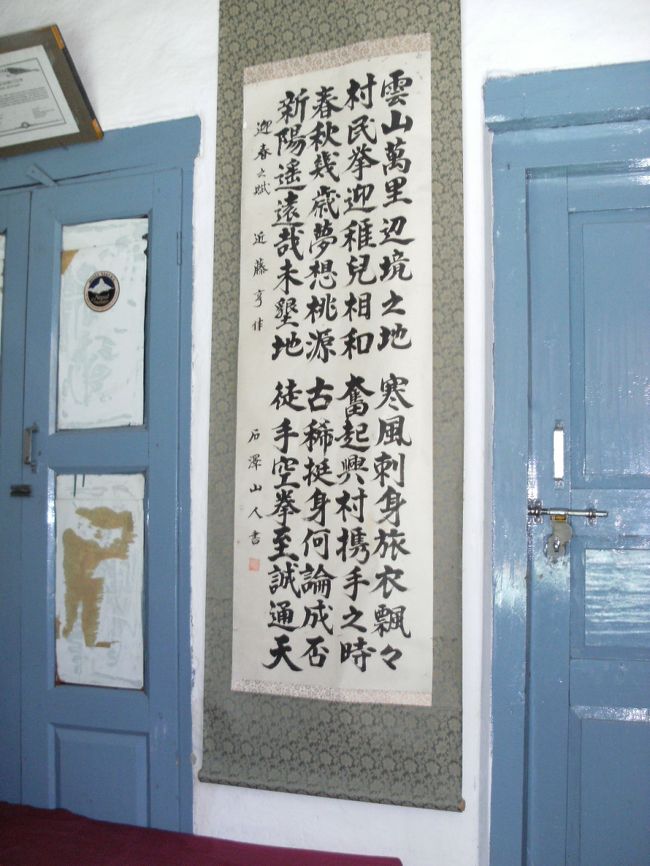 雲山萬里辺境之地 寒風刺身旅衣飄々
村民挙迎稚兒相和 奮起興村携手之時
春秋幾歳夢想桃源 古稀挺身何論成否
新陽遥遠哉未墾地 徒手空拳至誠通天
迎春之賦 近藤亨作
石澤山人書